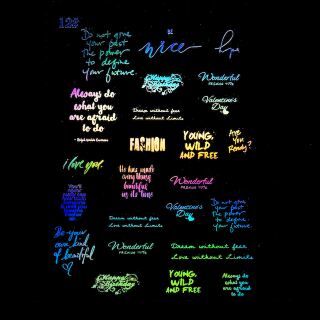 123
Do not give
your past
the power
to define
your future.
BE
nice
hope
Happy
Birthday
Wonderful
Always do
what you
are afraid
to do
Dream without fear
Love without Limits
Valentine's
Day
FASHION
YOUNG,
WILD
AND FREE
Are
You
Ready?
i love you.
He has made
everything
beautiful
in its time
Wonderful
Valentine's
Day
Do not give
your past
the power
to define
your future.
Dream without fear
Love without Limits
Be your
own kind
of beautiful
Wonderful
Dream without fear
Love without Limits
Happy
Birthday
YOUNG,
WILD
AND FREE
Always do
what you
are afraid
to do